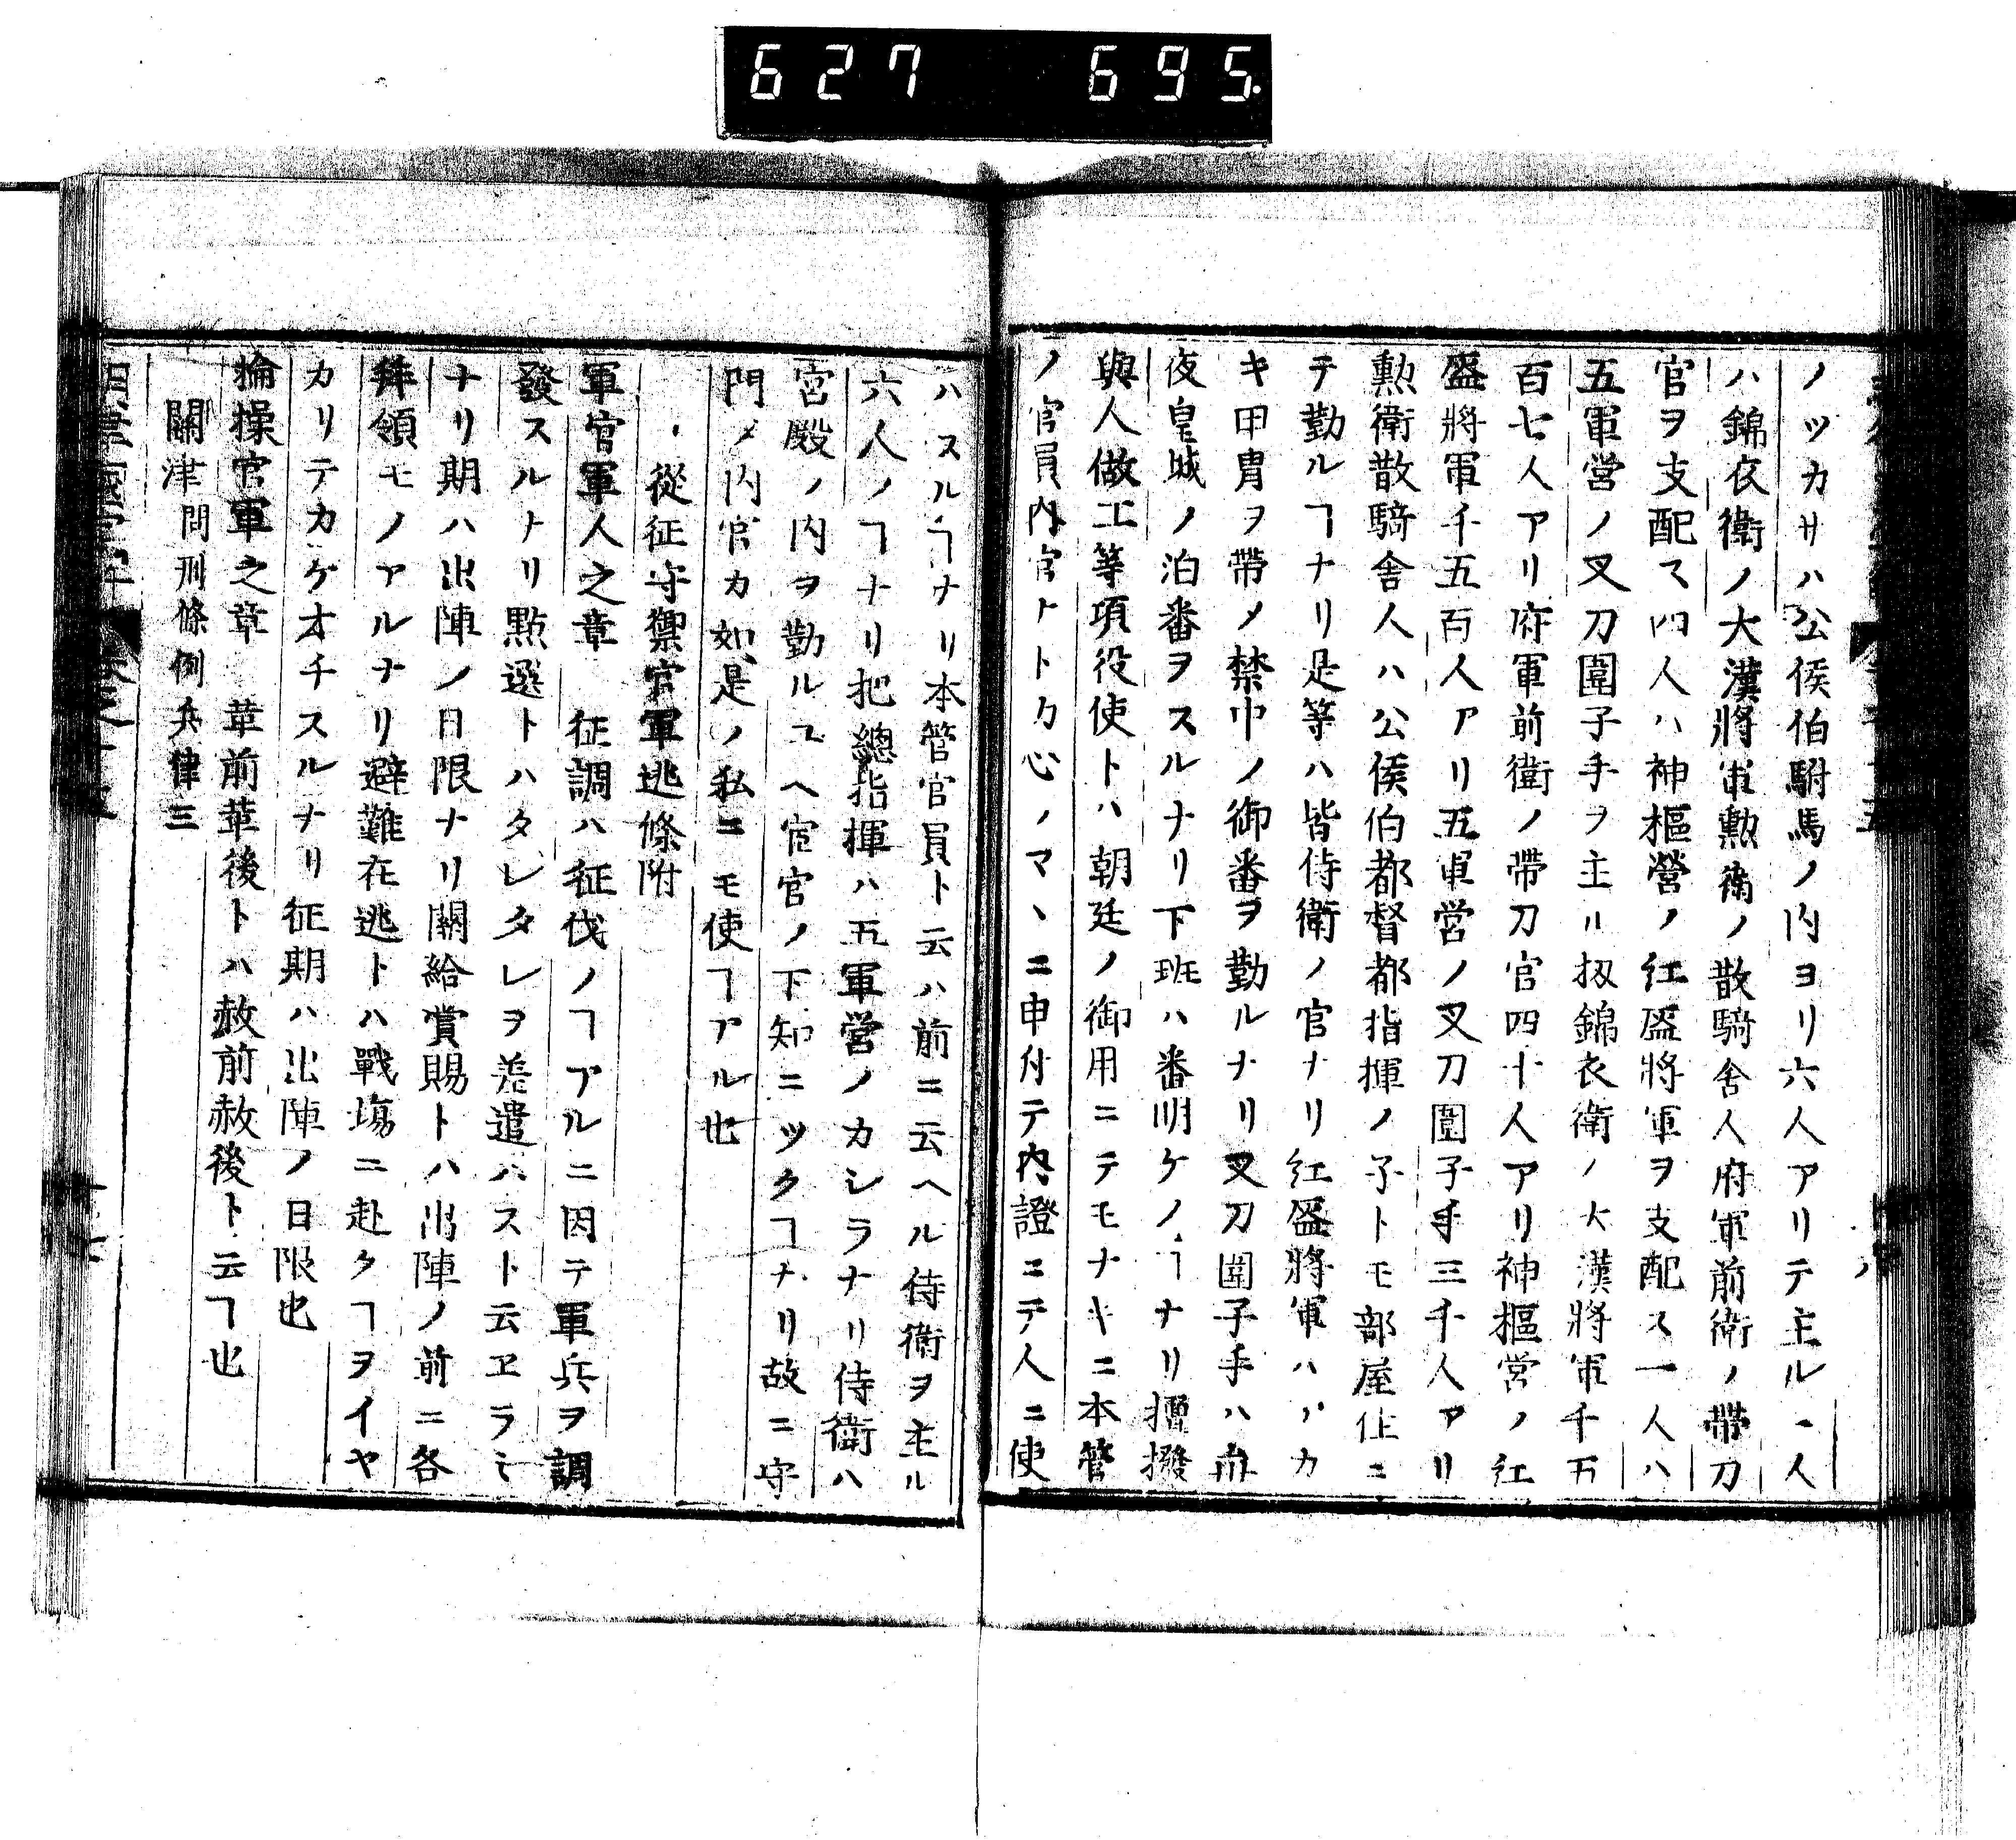 627 695.
ノツカサハ公侯伯駙馬ノ内ヨリ六人アリテ主ル一人
ハ錦衣衛ノ大漢將軍勲衛ノ散騎舎人府軍前衛ノ帶刀
官ヲ支配ス四人ハ神樞營ノ紅盛將軍ヲ支配ス一人ハ
五軍營ノ叉刀圍子手ヲ主ル扨錦衣衛ノ大漢將軍千五
百七人アリ府軍前衛ノ帶刀官四十人アリ神樞営ノ紅
盛將軍千五百人アリ五軍営ノ叉刀圍子手三千人アリ
勲衛散騎舎人ハ公侯伯都督都指揮ノ子トモ部屋住ニ
テ勤ルヿナリ是等ハ皆侍衛ノ官ナリ紅盛將軍ハハカ
キ甲冑ヲ帶メ禁中ノ御番ヲ勤ルナリ叉刀圍子手ハ晝
夜皇城ノ泊番ヲスルナリ下班ハ番明ケノヿナリ擅撥
與人做工等項役使トハ朝廷ノ御用ニテモナキニ本管
ノ官員内官トトカ心ノマヽニ申付テ内證ニテ人ニ使
ハスルヿナリ本管官員ト云ハ前ニ云ヘル侍衛ヲ主ル
六人ノヿナリ把總指揮ハ五軍営ノカシラナリ侍衛ハ
宮殿ノ内ヲ勤ルユヘ宦官ノ下知ニツクヿナリ故ニ守
門メ内官カ如是ノ私ニモ使ヿアル也
從征守禦官軍逃條附
軍官軍人之章 征調ハ征伐ノヿアルニ因テ軍兵ヲ調
發スルナリ點選トハタレタレヲ差遣ハスト云ヱラミ
ナリ期ハ出陣ノ日限ナリ關給賞賜トハ出陣ノ前ニ各
拜領モノアルナリ避難在逃トハ戰塲ニ赴クヿヲイヤ
カリテカゲオチスルナリ征期ハ出陣ノ日限也
掄操官軍之章 革前革後トハ赦前赦後ト云ヿ也
關津 問刑條例兵律三